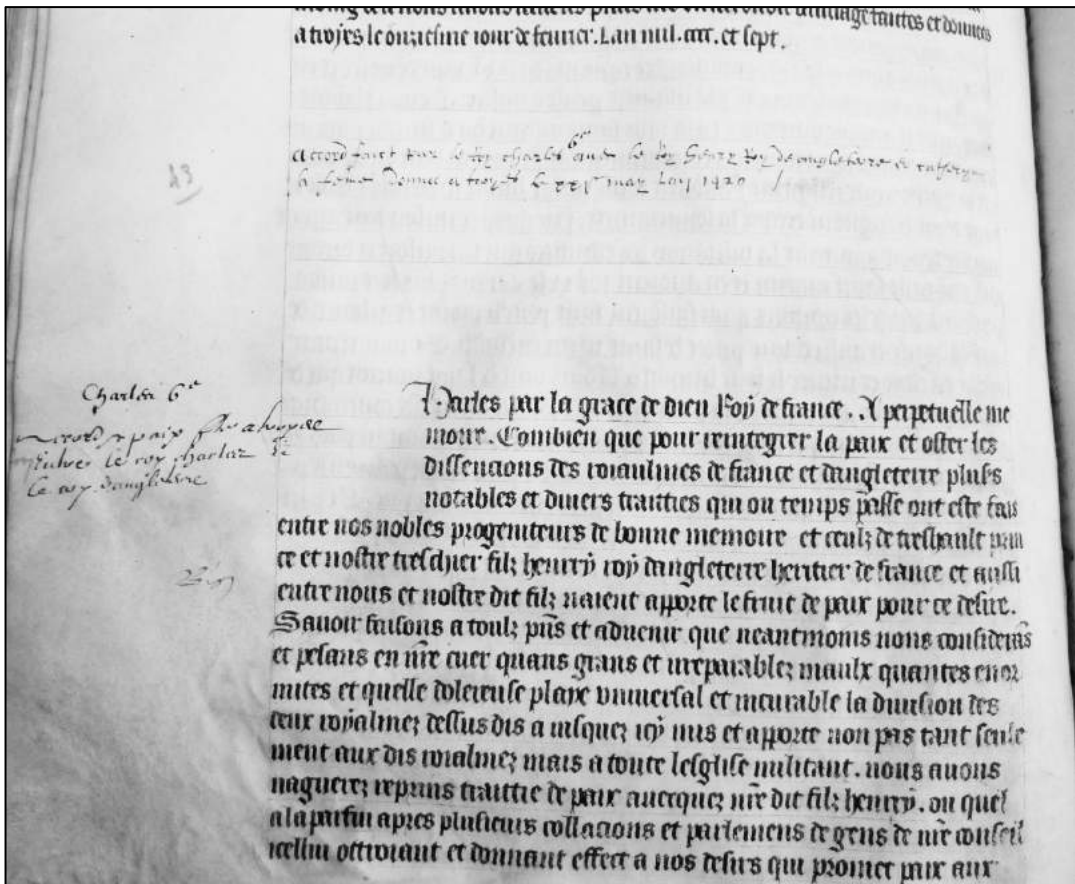 a troyes le onziesme iour de feurier. Lan mil. cccc. et sept.
Accord faict par le roy charles 6e auec le roy Henry Roy de angleterre et
la france donne a troyes le xxj may lan 1420
Charles 6e
accord & paix
entre le roy charles &
le roy dangleterre
Harles par la grace de dieu Roy de france. A perpetuelle me
moire. Combien que pour reintegrer la paix et oster les
dissencions des roiaulmes de france et dangleterre plusrs
notables et diuers traitties qui ou temps passe ont este fais
entre nos nobles progeniteurs de bonne memoire et ceulz de treshault prin
ce et nostre treschier filz henry roy dangleterre heritier de france et aussi
entre nous et nostre dit filz naient apporte le fruit de paix pour ce desire.
Sauoir faisons a toulz pns et aduenir que neantmoins nous considerans
et pesans en nre cuer quans grans et irreparablez maulx quantes enor
mites et quelle dolereuse playe vniuersal et incurable la diuision des
deux royalmez dessus dis a iusquez icy mis et apporte non pas tant seule
ment aux dis roialmez mais a toute lesglise militant. nous auons
naguerez reprins traittie de paix auecquez nre dit filz henry. ou quel
a la parfin apres plusieurs collacions et parlemens de gens de nre conseil
icellui ottroiant et donnant effect a nos desirs qui promet paix aux